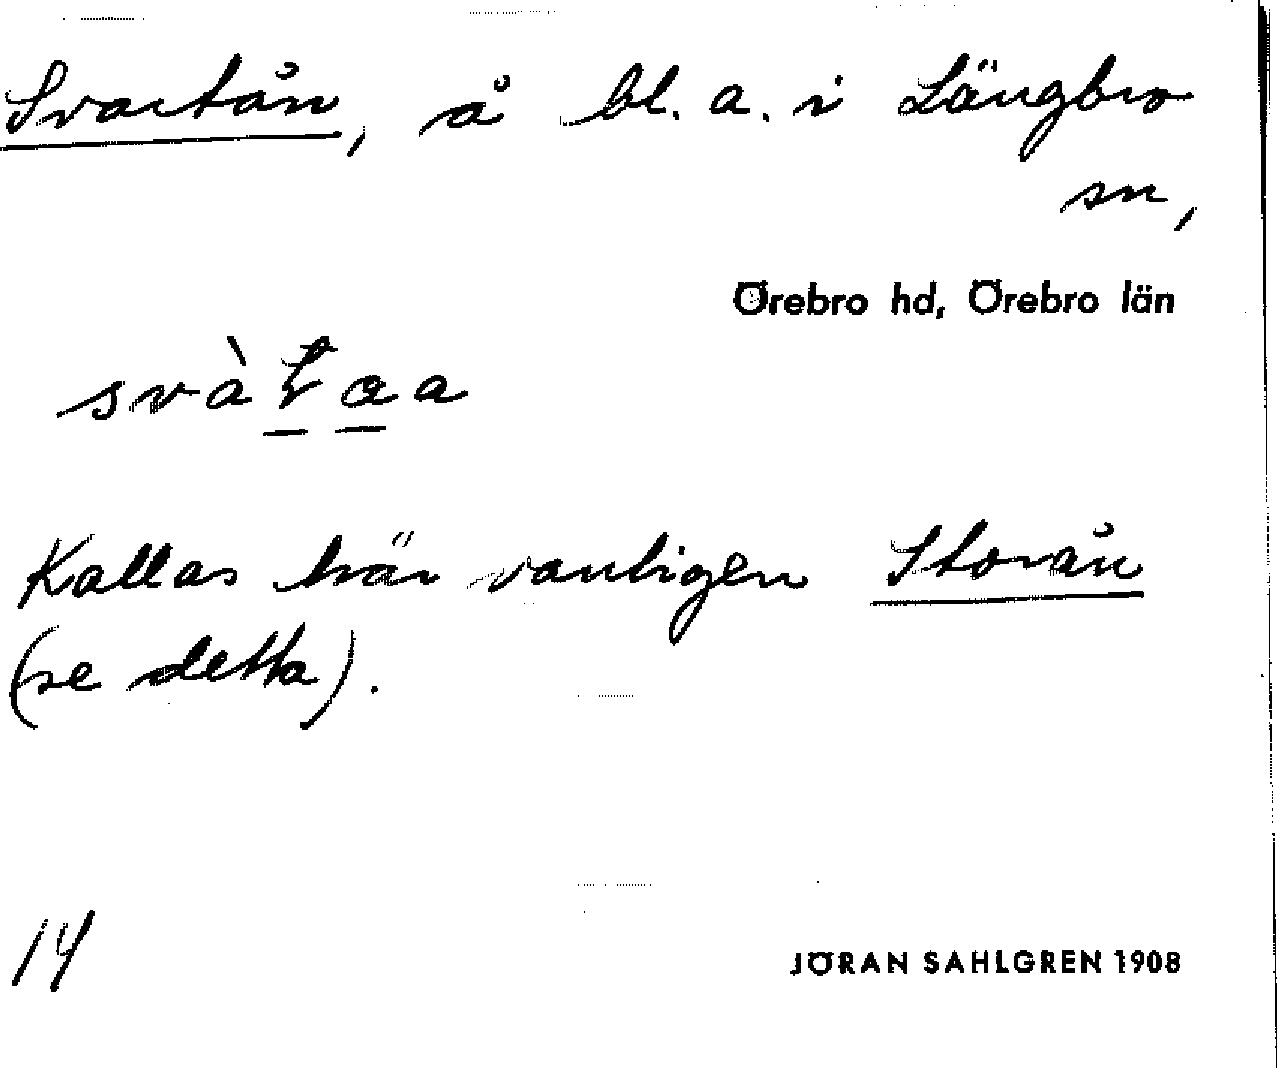 Svartån, å bl. a. i Längbro
sn,
Örebro hd, Örebro län
Kallas här vanligen Storån
(se detta).
14
JÖRAN SAHLGREN 1908